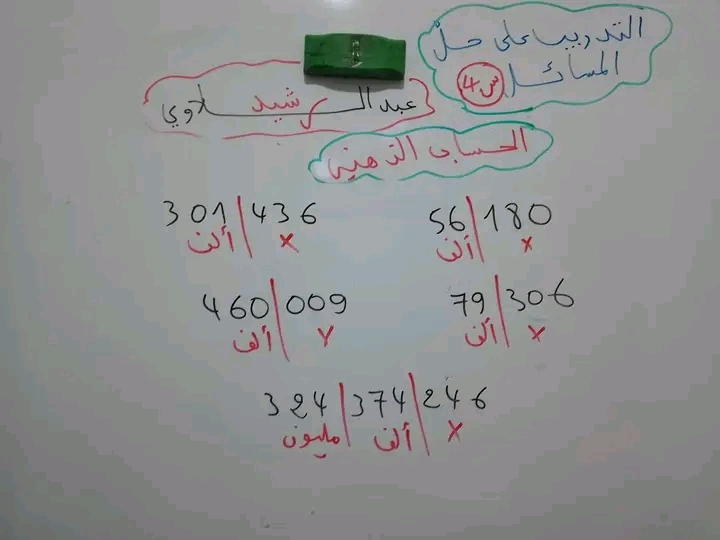 التدريب على حل
المسائل س4
عبد الرشيد لاوي
الحساب الذهني
301|436 56|180
ألف x ألف x
460|009 79|306
ألف x ألف x
324|374|246
مليون ألف x